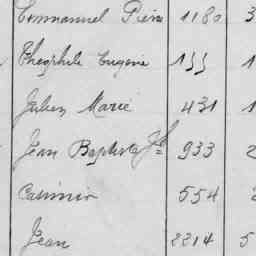 Emmanuel Pierre 1180 3
Théophile Eugène 155 1
Julien Marie 431 1
Jean Baptiste Jh 933 2
Casimir 554 2
Jean 2214 5